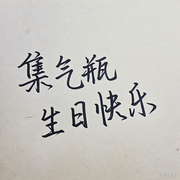 集气瓶
生日快乐